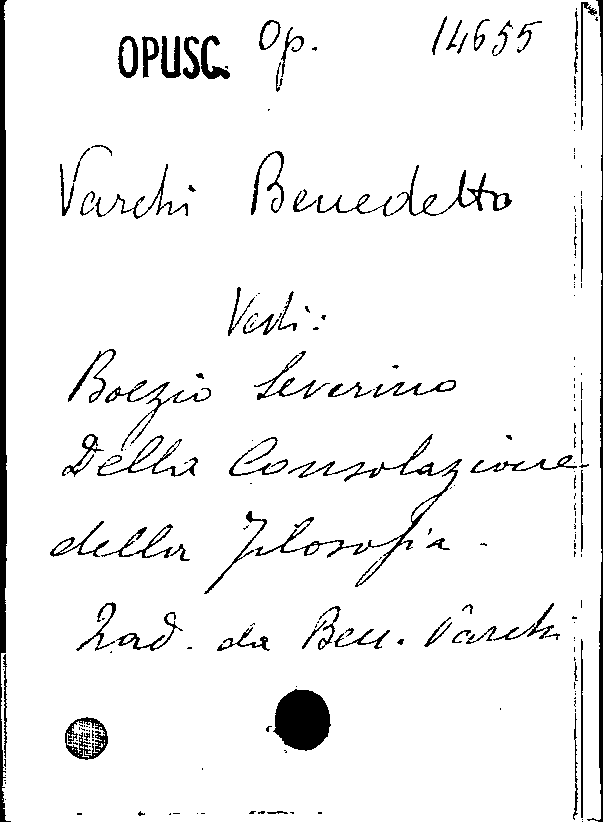 OPUSC. Op. 14655
Varchi Benedetto
Vedi:
Boezio Severino
Della Consolazione
della Filosofia -
Trad. da Ben. Varchi